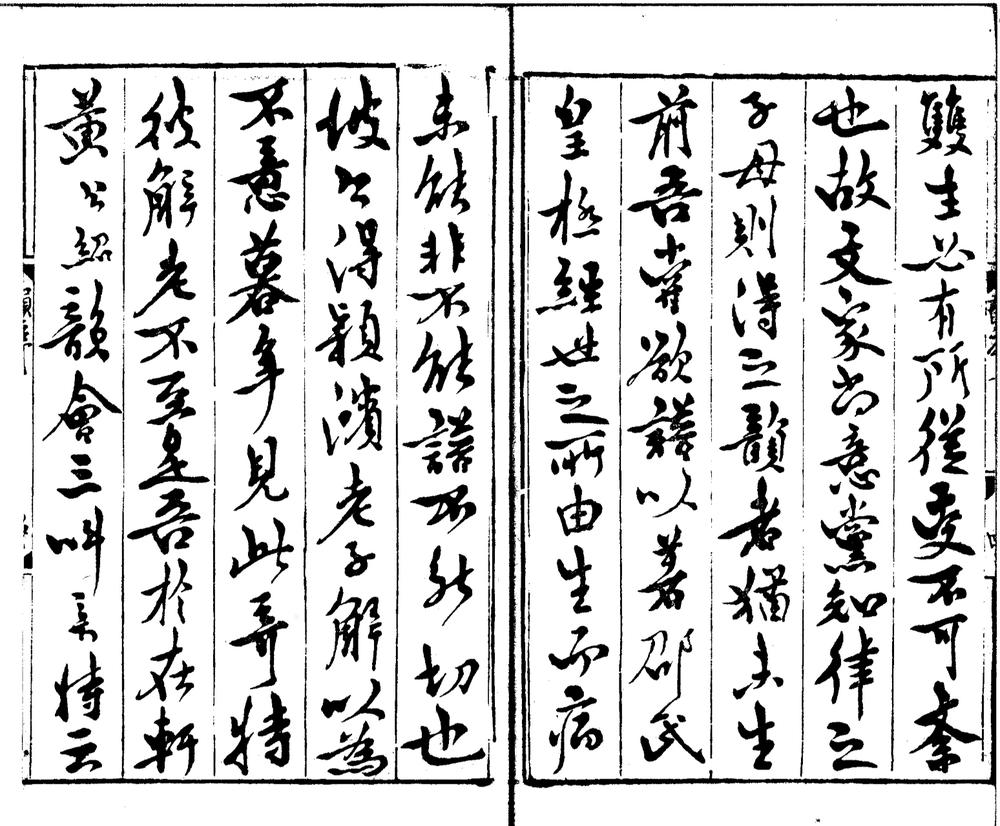 雙生必有所從受不可紊
也故文家尚意黨知律之
子母則得之韻者猶未生
前吾嘗欲譜以著邵氏
皇極經世之所由生而病
未能非不能譜不能切也
坡公得潁濱老子解以為
不意暮年見此奇特
彼解老不至是吾於在軒
黃公紹韻會三叫奇特云